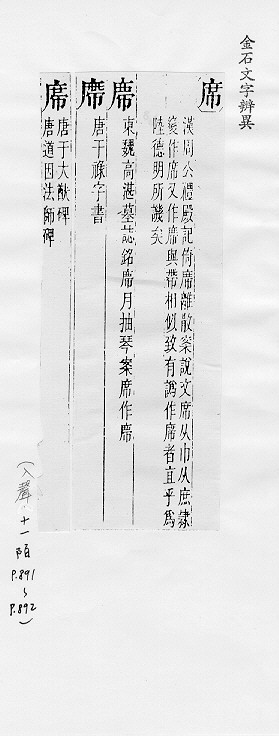 金石文字辨異
席
漢周公禮殿記倚席離散案說文席从巾从庶隸
變作席又作廗與帶相似致有譌作廗者宜乎為
陸德明所譏矣
廗
東魏高湛墓誌銘廗月抽琴案席作廗
席
唐干祿字書
席
唐于大猷碑
唐道因法師碑
(入聲 十一陌
P.891
~
P.892)